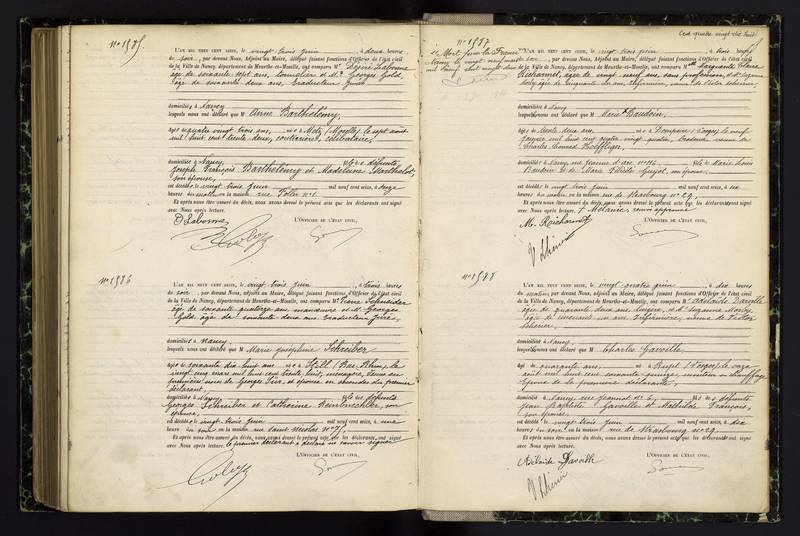 N° 1985.
L'AN MIL NEUF CENT SEIZE, le vingt trois juin, à deux heures
du soir, par devant Nous, Adjoint au Maire, délégué faisant fonctions d'Officier de l'état civil
de la Ville de Nancy, département de Meurthe-et-Moselle, ont comparu M. Désiré Labonne
âgé de soixante sept ans, tonnelier et M. Georges Gold,
âgé de soixante deux ans, traducteur juré
domiciliés à Nancy
lesquels nous ont déclaré que M Anne Barthélémy,
âgée de quatre vingt trois ans, née à Metz (Moselle) le sept août
mil huit cent trente deux, couturière, célibataire,
domiciliée à Nancy, fille de défunts
Joseph François Barthélémy et Madeleine
son épouse,
est décédée le vingt trois juin mil neuf cent seize, à onze
heures du matin en la maison rue Foller n° 1.
Et après nous être assuré du décès, nous avons dressé le présent acte que les déclarants ont signé
avec Nous après lecture.
D Labonne
L'OFFICIER DE L'ÉTAT CIVIL,
N° 1986
L'AN MIL NEUF CENT SEIZE, le vingt trois juin, à trois heures
du soir, par devant Nous, adjoint au Maire, délégué faisant fonctions d'Officier de l'état civil
de la Ville de Nancy, département de Meurthe-et-Moselle, ont comparu M. Pierre Schneider
âgé de soixante quatorze ans, manœuvre et M. Georges
Gold, âgé de soixante deux ans, traducteur juré,
domiciliés à Nancy
lesquels nous ont déclaré que M Marie Joséphine Schreiber
âgée de soixante dix huit ans, née à Still (Bas Rhin) le
vingt cinq mai mil huit cent trente huit, ménagère, veuve en
premières noces de Georges et épouse en secondes du premier
déclarant,
domiciliée à Nancy, fille de défunts
Georges Schreiber et Catherine son
épouse,
est décédée le vingt trois juin mil neuf cent seize, à une
heure du soir en la maison rue Saint Nicolas n° 71.
Et après nous être assuré du décès, nous avons dressé le présent acte que les déclarants ont signé
avec Nous après lecture, le premier déclarant a déclaré ne savoir signer
L'OFFICIER DE L'ÉTAT CIVIL,
Cent quatre vingt dix huit
N° 1987
Mort pour la France
Nancy le vingt neuf août
mil neuf cent vingt deux
L'AN MIL NEUF CENT SEIZE, le vingt trois juin, à trois heures
du soir, par devant Nous, adjoint au Maire, délégué faisant fonctions d'Officier de l'état civil
de la Ville de Nancy, département de Meurthe-et-Moselle, ont comparu M Marguerite Claire
Richarmet, âgée de vingt neuf ans, sans profession, et Suzanne
Morly âgée de cinquante un ans, infirmière, veuve de Victor Lhérier,
domiciliées à Nancy
lesquelles nous ont déclaré que M Marie Baudoin,
âgée de trente deux ans, née à Dompaire (Vosges) le neuf
janvier mil huit cent quatre vingt quatre, brodeuse, veuve de
Charles Conrad
domiciliée à Nancy, rue Jeanne d'Arc n° 116, fille de Marie Louis
Baudoin et de Marie Félicité Guyot, son épouse,
est décédée le vingt trois juin mil neuf cent seize, à dix
heures du matin en la maison rue de Strasbourg n° 29.
Et après nous être assuré du décès, nous avons dressé le présent acte que les déclarants ont signé
avec Nous après lecture. + Mélanie, renvoi approuvé
M. Richarmet
L'OFFICIER DE L'ÉTAT CIVIL,
V Lhérier
N° 1988
L'AN MIL NEUF CENT SEIZE, le vingt quatre juin, à dix heures
du matin, par devant Nous, adjoint au Maire, délégué faisant fonctions d'Officier de l'état civil
de la Ville de Nancy, département de Meurthe-et-Moselle, ont comparu M Adélaïde
âgée de quarante deux ans, lingère, et Suzanne Morly,
âgée de cinquante un ans, infirmière, veuve de Victor
Lhérier,
domiciliées à Nancy,
lesquelles nous ont déclaré que M Charles Garville,
âgé de quarante ans, né à Rupt (Vosges) le onze
août mil huit cent soixante quinze, monteur en chauffage
époux de la première déclarante,
domicilié à Nancy, rue Jeannot n° 6, fils de défunts
Jean Baptiste Garville et Mathilde François,
son épouse,
est décédé le vingt trois juin mil neuf cent seize, à dix
heures du soir en la maison rue de Strasbourg n° 29.
Et après nous être assuré du décès, nous avons dressé le présent acte que les déclarants ont signé
avec Nous après lecture.
Adélaïde Garville
L'OFFICIER DE L'ÉTAT CIVIL,
V Lhérier